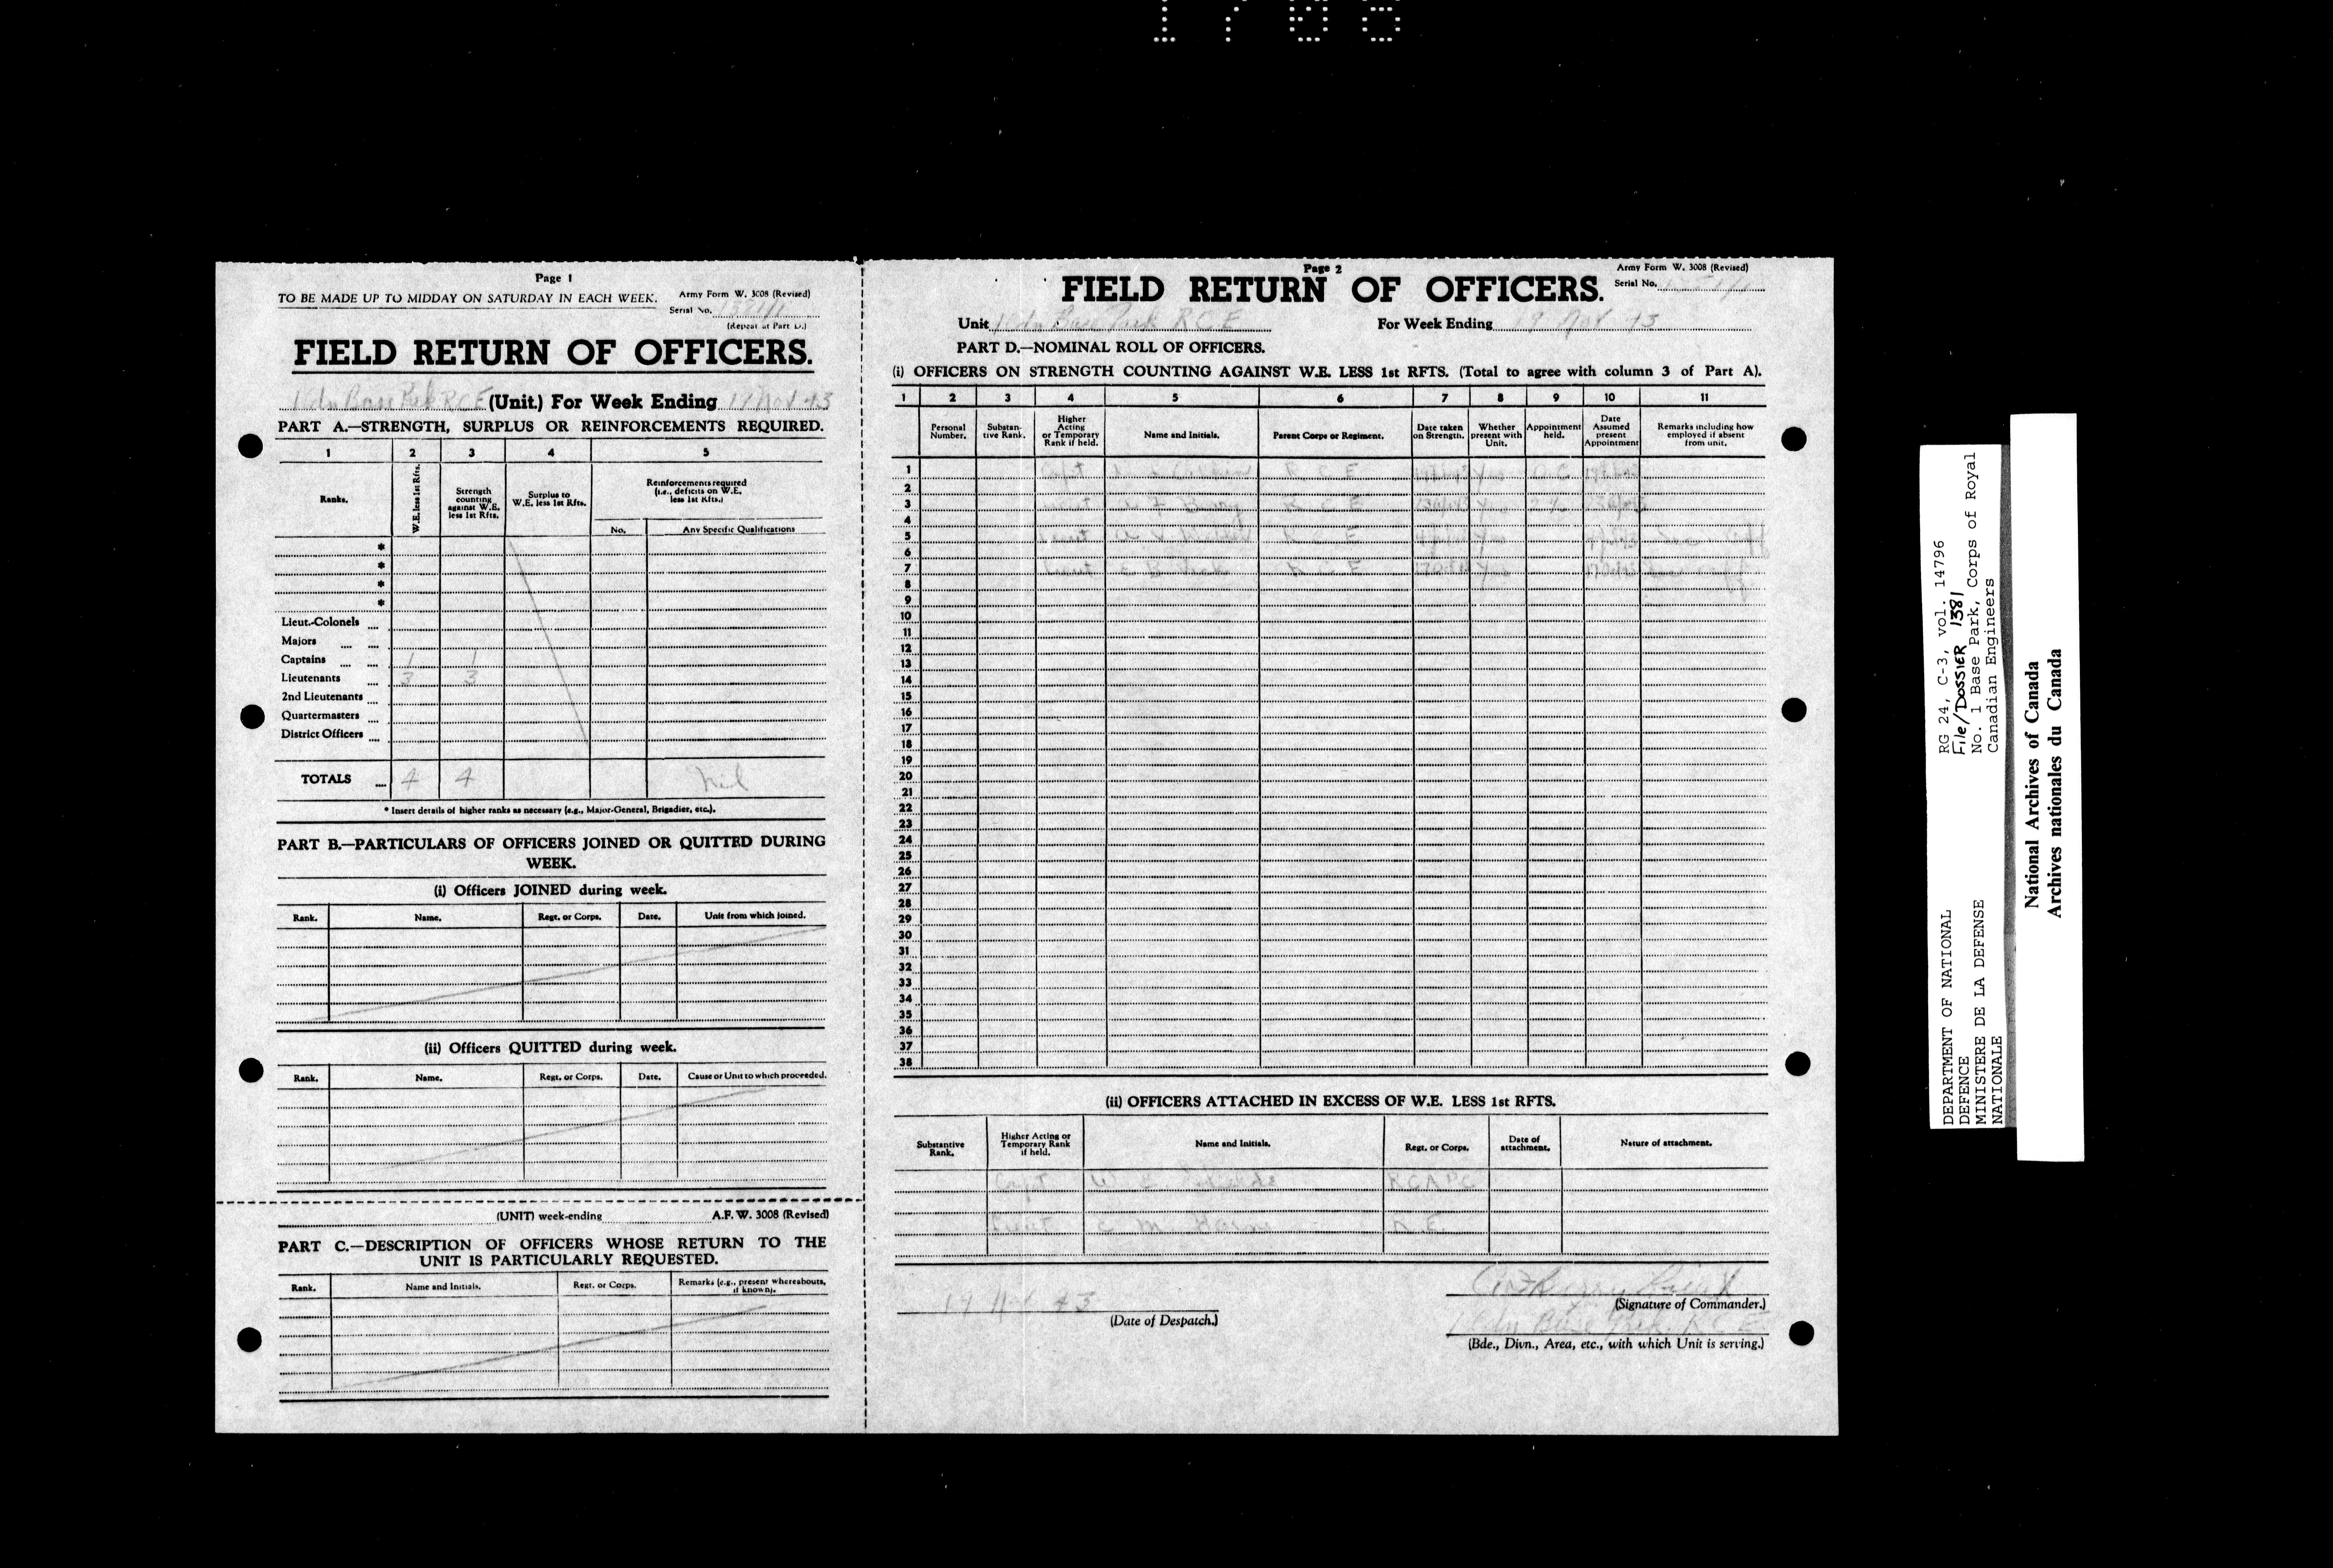 1708
Page 1
TO BE MADE UP TO MIDDAY ON SATURDAY IN EACH WEEK.
Army Form W. 3008 (Revised)
Serial No.
(Repeat at Part D.)
FIELD RETURN OF OFFICERS.
1 Cdn Base Park RCE (Unit.) For Week Ending Nov 43
PART A.—STRENGTH, SURPLUS OR REINFORCEMENTS REQUIRED.
1 2 3 4 5
Ranks.
W.E. less 1st Rfts.
Strength counting against W.E. less 1st Rfts.
Surplus to W.E. less 1st Rfts.
Reinforcements required (i.e., deficits on W.E. less 1st Rfts.)
No.
Any Specific Qualifications
*
*
*
*
Lieut.-Colonels ....
Majors .... ....
Captains .... .... 1 1
Lieutenants .... 3 3
2nd Lieutenants ....
Quartermasters ....
District Officers ....
TOTALS .... 4 4 Nil
* Insert details of higher ranks as necessary (e.g., Major-General, Brigadier, etc.).
PART B.—PARTICULARS OF OFFICERS JOINED OR QUITTED DURING
WEEK.
(i) Officers JOINED during week.
Rank. Name. Regt. or Corps. Date. Unit from which joined.
(ii) Officers QUITTED during week.
Rank. Name. Regt. or Corps. Date. Cause or Unit to which proceeded.
(UNIT) week-ending A.F. W. 3008 (Revised)
PART C.—DESCRIPTION OF OFFICERS WHOSE RETURN TO THE
UNIT IS PARTICULARLY REQUESTED.
Rank. Name and Initials. Regt. or Corps. Remarks (e.g., present whereabouts, if known).
Page 2
Army Form W. 3008 (Revised)
FIELD RETURN OF OFFICERS.
Serial No.
Unit 1 Cdn Base Park R C E For Week Ending 19 Nov 43
PART D.—NOMINAL ROLL OF OFFICERS.
(i) OFFICERS ON STRENGTH COUNTING AGAINST W.E. LESS 1st RFTS. (Total to agree with column 3 of Part A).
1 2 3 4 5 6 7 8 9 10 11
Personal Number.
Substantive Rank.
Higher Acting or Temporary Rank if held.
Name and Initials.
Parent Corps or Regiment.
Date taken on Strength.
Whether present with Unit.
Appointment held.
Date Assumed present Appointment
Remarks including how employed if absent from unit.
1 Capt R C E Yes O C
2
3 Lieut R C E Yes
4
5 Lieut R C E Yes
6
7 Lieut R C E Yes
8
9
10
11
12
13
14
15
16
17
18
19
20
21
22
23
24
25
26
27
28
29
30
31
32
33
34
35
36
37
38
(ii) OFFICERS ATTACHED IN EXCESS OF W.E. LESS 1st RFTS.
Substantive Rank.
Higher Acting or Temporary Rank if held.
Name and Initials.
Regt. or Corps.
Date of attachment.
Nature of attachment.
Capt W E RCAPC
Lieut C M R.E.
19 43
(Date of Despatch.)
(Signature of Commander.)
1 Cdn Base Park RCE
(Bde., Divn., Area, etc., with which Unit is serving.)
DEPARTMENT OF NATIONAL
DEFENCE
MINISTERE DE LA DEFENSE
NATIONALE
RG 24, C-3, vol. 14796
File/DOSSIER 1381
No. 1 Base Park, Corps of Royal
Canadian Engineers
National Archives of Canada
Archives nationales du Canada